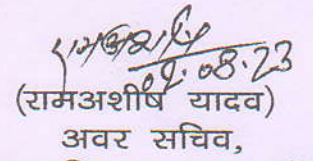 02.08.23
(रामअशीष यादव)
अवर सचिव,